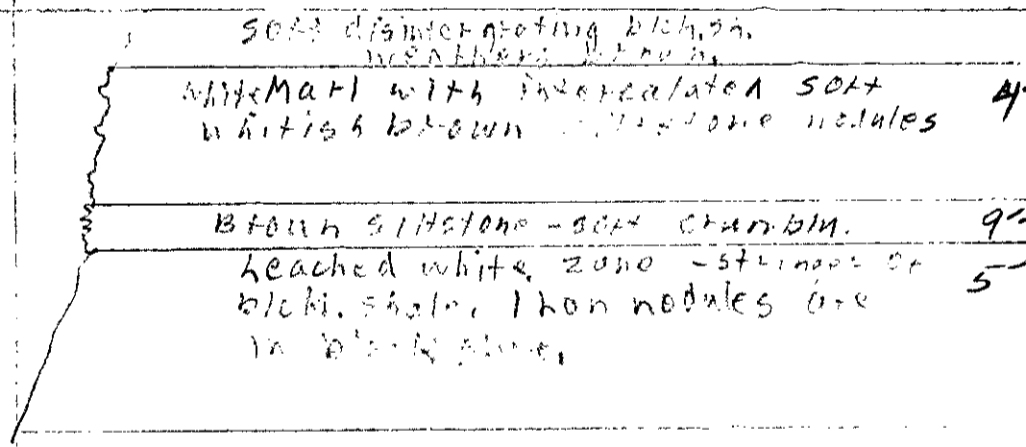 soft disintergrating blck. sh.
weathers brown.
White Marl with intercalated soft 4'
whitish brown siltstone nodules
Brown siltstone - soft crumbly. 9"
Leached white zone - stringers of 5'
blck. shale. Iron nodules are
in black